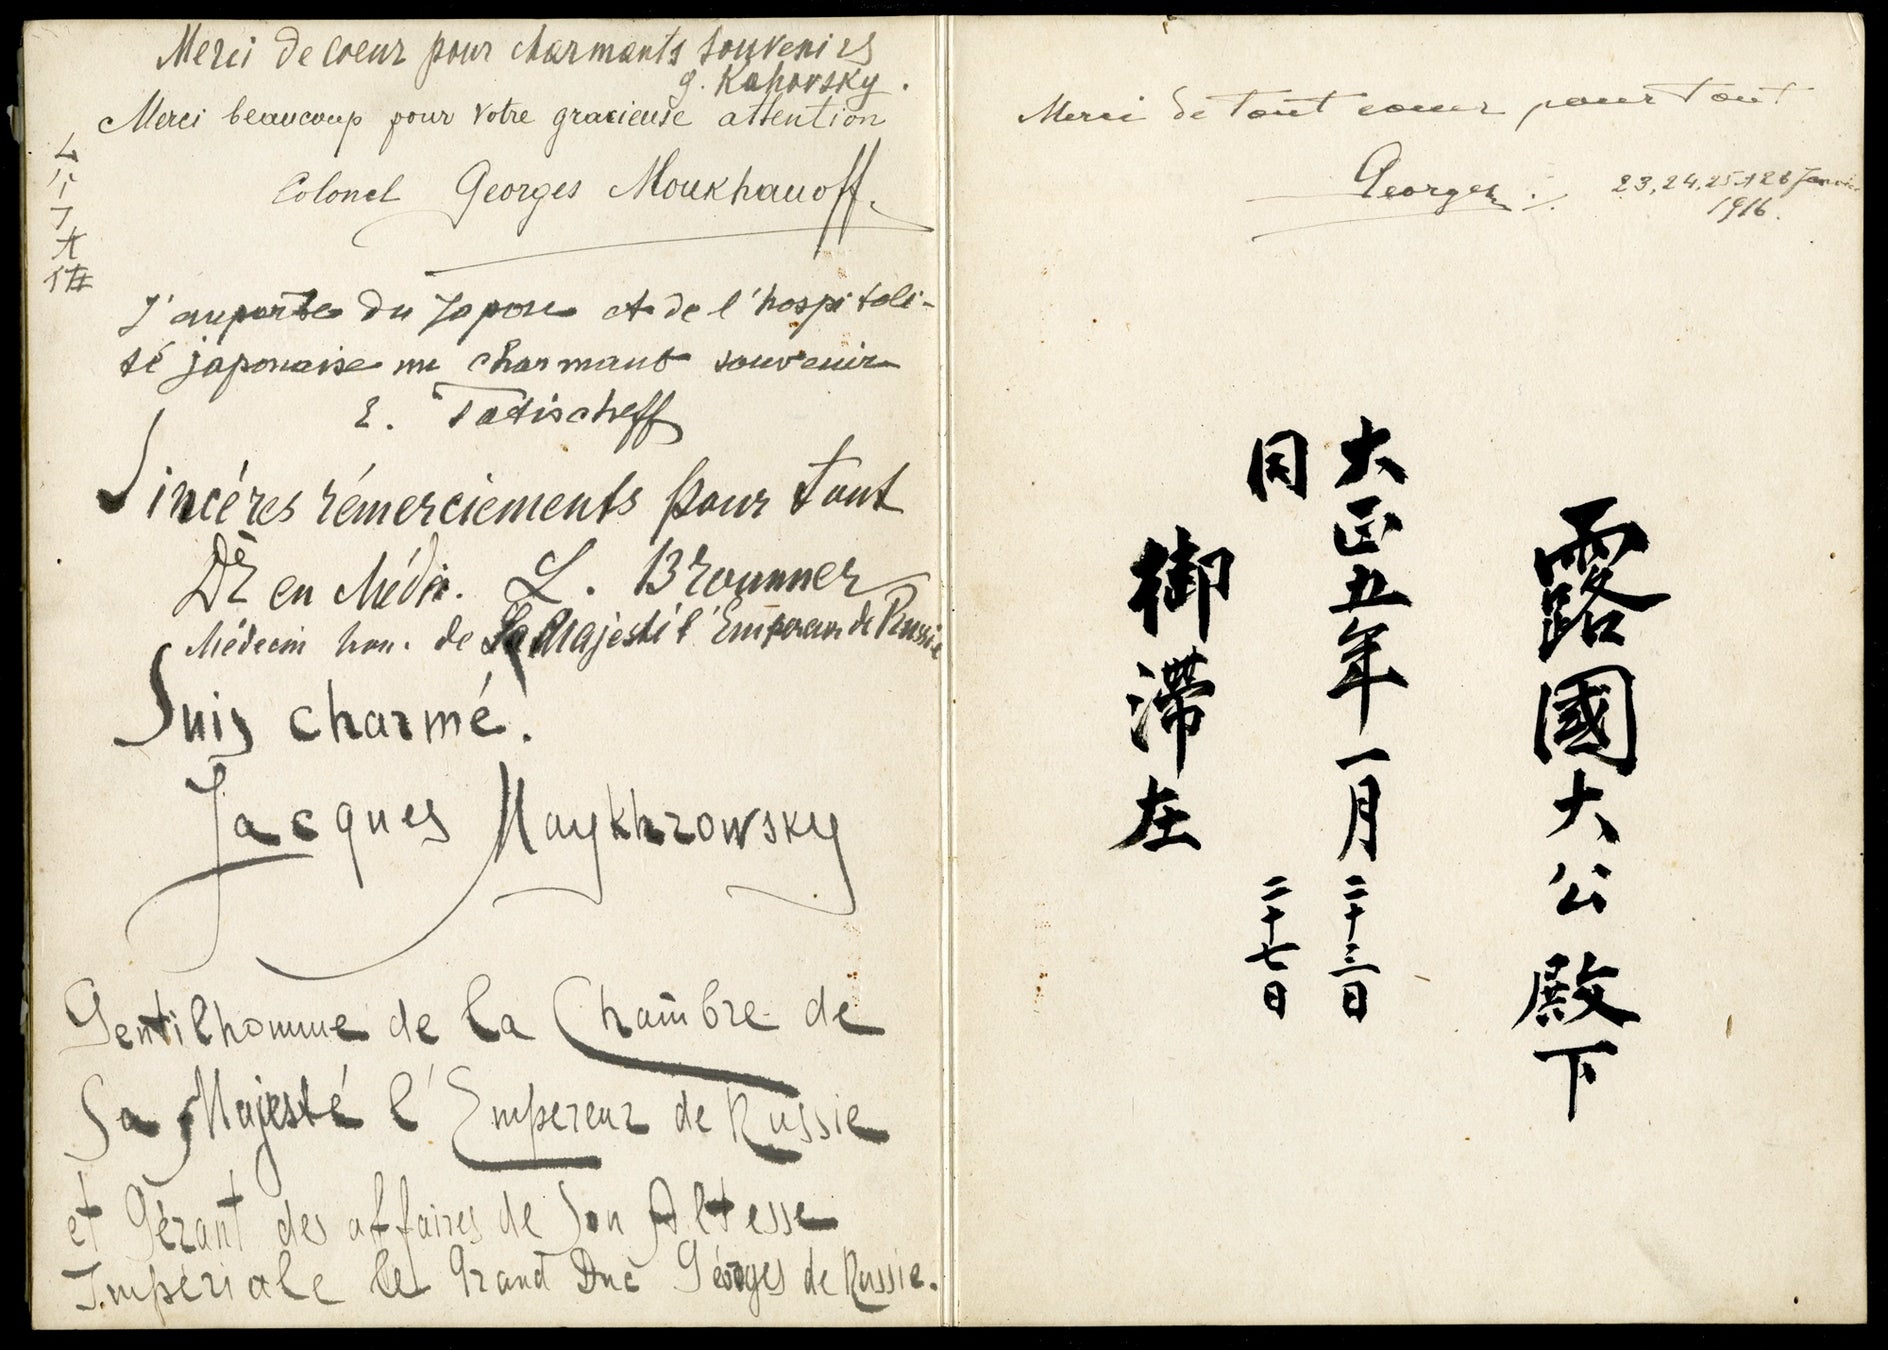 Merci de coeur pour charmants souvenirs
G. Kahovsky.
Merci beaucoup pour votre gracieuse attention
Colonel Georges Moukhanoff.
J'emporte du Japon et de l'hospitali-
té japonaise un charmant souvenir
E. Tatischeff
Sincéres rémerciements pour tout
Dr en Médic. L. Brounner
Médecin hon. de Sa Majesté l'Empereur de Russie
Suis charmé.
Jacques Maykhrowsky
Gentilhomme de la Chambre de
Sa Majesté l'Empereur de Russie
et Gérant des affaires de Son Altesse
Impériale le Grand Duc Géorges de Russie.
Merci de tout coeur pour tout
Georges
23, 24, 25 et 26 Janvier
1916.
露國大公殿下
大正五年一月二十三日
同 二十七日
御滞在